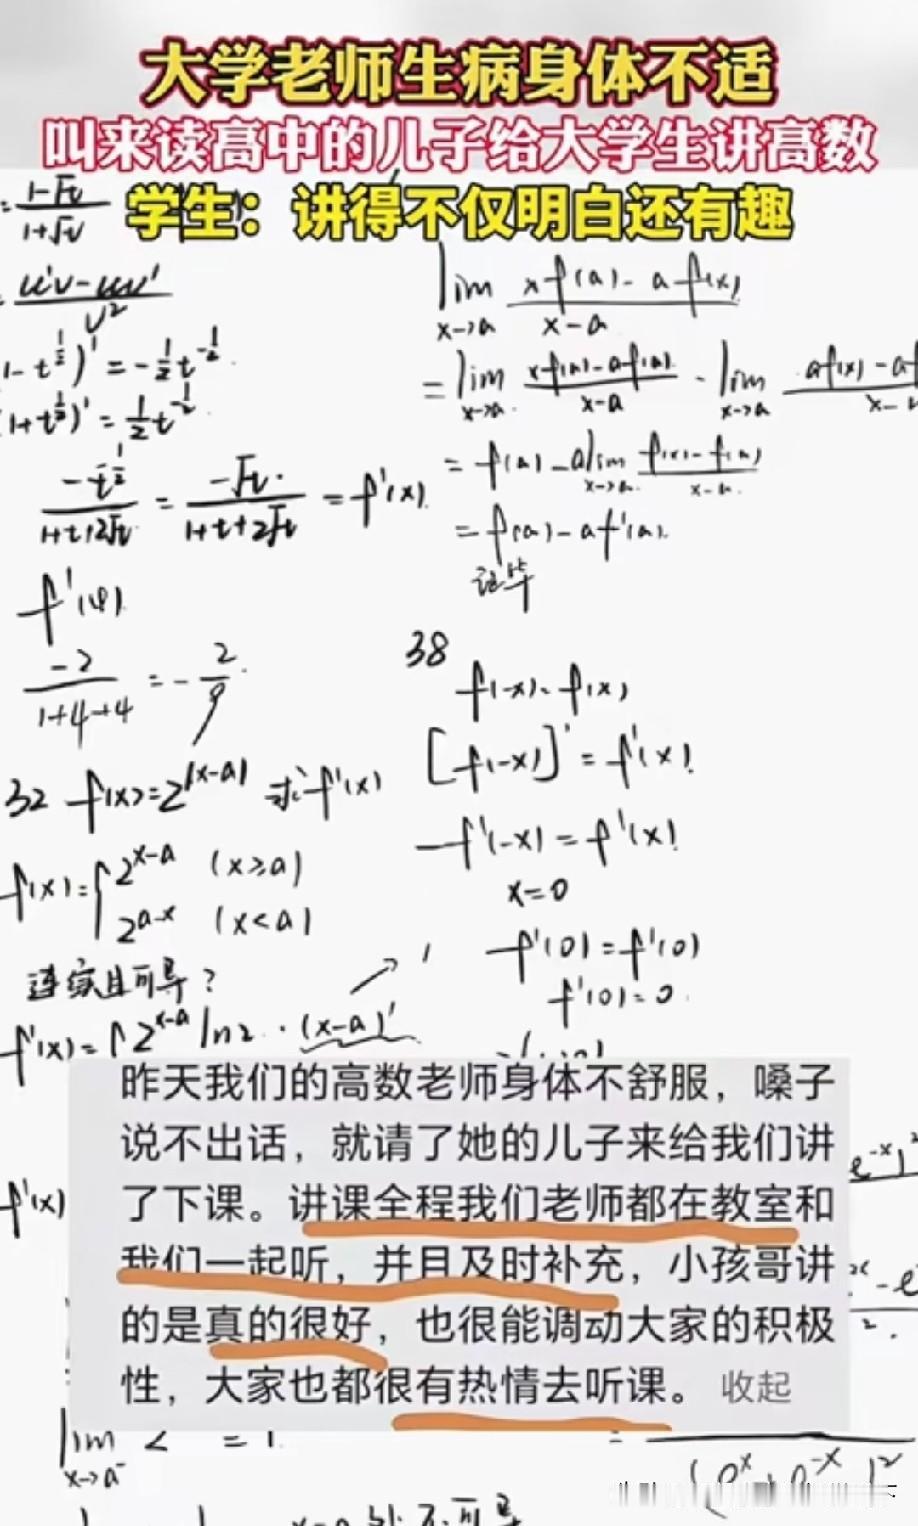 大学老师生病身体不适
叫来读高中的儿子给大学生讲高数
学生：讲得不仅明白还有趣
= (1-√t)/(1+√t)
(u'v-uv')/v²
1-t^(1/2))' = -1/2 t^(-1/2)
(1+t^(1/2))' = 1/2 t^(-1/2)
-t^(1/2)/(1+t+2√t) = -√t/(1+t+2√t) = f'(x)
f'(4)
-2/(1+4+4) = -2/9
32 f(x)=2^|x-a| 求f'(x)
f(x)={2^(x-a) (x≥a)
2^(a-x) (x<a)
连续且可导?
f'(x)={2^(x-a) ln2·(x-a)' → 1
f'(x)
lim x→a (xf(a)-af(x))/(x-a)
=lim x→a (xf(a)-af(a))/(x-a) - lim x→a (af(x)-af
=f(a)-a lim x→a (f(x)-f(a))/(x-a)
=f(a)-af'(a)
证毕
38
f(-x)=f(x)
[f(-x)]'=f'(x)
-f'(-x)=f'(x)
x=0
-f'(0)=f'(0)
f'(0)=0
昨天我们的高数老师身体不舒服，嗓子
说不出话，就请了她的儿子来给我们讲
了下课。讲课全程我们老师都在教室和
我们一起听，并且及时补充，小孩哥讲
的是真的很好，也很能调动大家的积极
性，大家也都很有热情去听课。 收起
lim x→a⁻